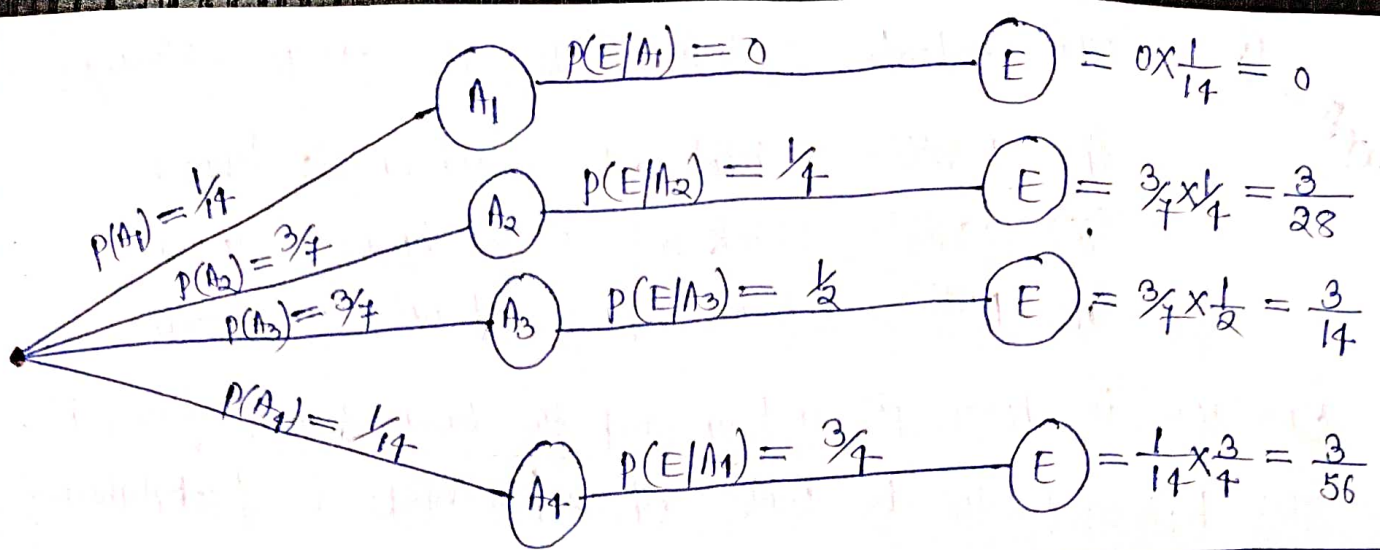 A1 P(E/A1) = 0 E = 0×1/14 = 0
P(A1) = 1/14
A2 P(E/A2) = 1/4 E = 3/7×1/4 = 3/28
P(A2) = 3/7
P(A3) = 3/7
A3 P(E/A3) = 1/2 E = 3/7×1/2 = 3/14
P(A4) = 1/14
A4 P(E/A4) = 3/4 E = 1/14×3/4 = 3/56